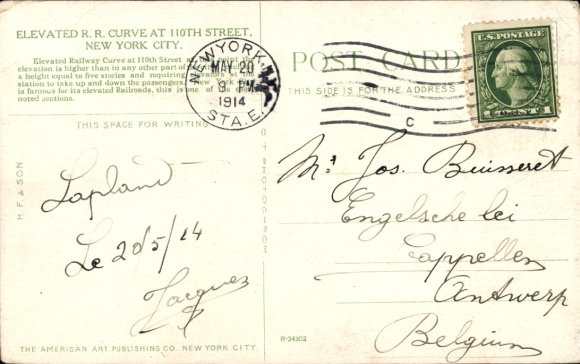 ELEVATED R. R. CURVE AT 110TH STREET,
NEW YORK CITY.
Elevated Railway Curve at 110th Street
elevation is higher than in any other part of
a height equal to five stories and requiring elevators at the
station to take up and down the passengers. New York
is famous for its elevated Railroads, this is one of the most
noted sections.
POST CARD
THIS SIDE IS FOR THE ADDRESS
NEW YORK, N.Y.
MAY 20
1914
STA. E.
C
U.S. POSTAGE
1 CENT 1
THIS SPACE FOR WRITING
H. F. & SON
Lapland
Le 20/5/14
Jacques
Mr. Jos. Buisseret
Engelsche lei
Cappellen
Antwerp
Belgium
THE AMERICAN ART PUBLISHING CO. NEW YORK CITY.
R-34302